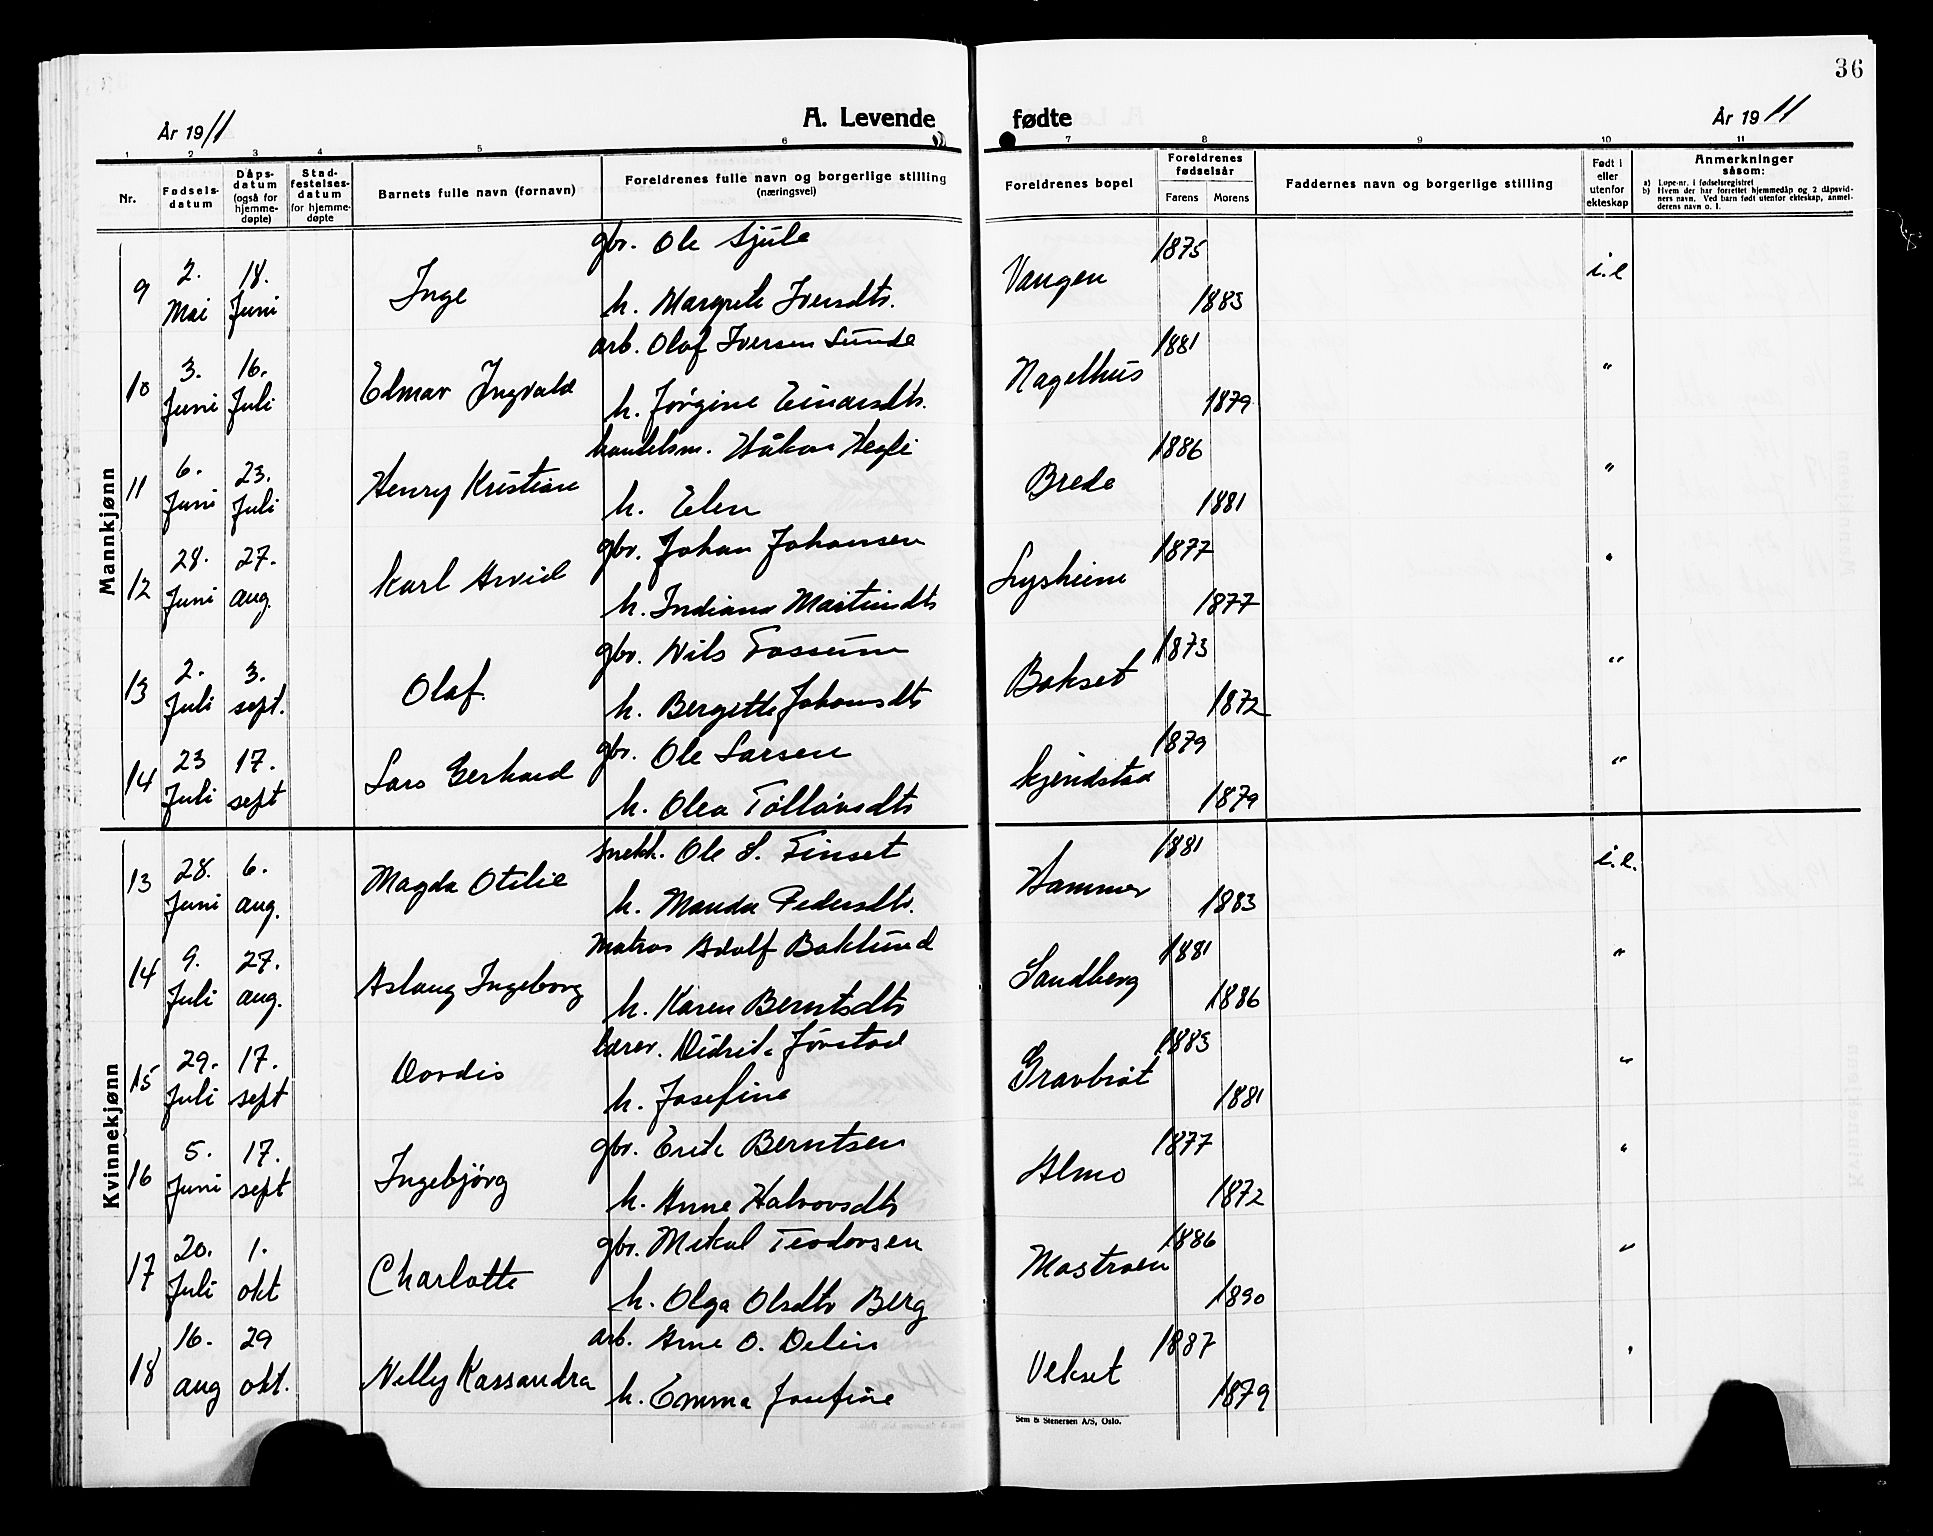 36
År 1911
A. Levende
fødte
År 1911
1 2 3 4 5 6 7 8 9 10 11
Nr.
Fødsels-
datum
Dåps-
datum
(også for
hjemme-
døpte)
Stad-
festelses-
datum
for hjemme-
døpte
Barnets fulle navn (fornavn)
Foreldrenes fulle navn og borgerlige stilling
(næringsvei)
Foreldrenes bopel
Foreldrenes
fødselsår
Farens
Morens
Faddernes navn og borgerlige stilling
Født i
eller
utenfor
ekteskap
Anmerkninger
såsom:
a) Løpe-nr. i fødselsregistret
b) Hvem der har forrettet hjemmedåp og 2 dåpsvid-
ners navn. Ved barn født utenfor ekteskap, anmel-
derens navn o. l.
Mannkjønn
gbr. Ole Sjule 1875
9 2. Mai 18. Juni Inge Vangen i.e
h. Margrete Iversdtr. 1883
arb. Olaf Iversen Sunde 1881
10 3. Juni 16. Juli Elmar Ingvald Nagelhus "
h. Jørgine Einarsdtr. 1879
handelsm. Håkon Hegli 1886
11 6. Juni 23. Juli Henry Kristian Brede "
h. Elen 1881
gbr. Johan Johansen 1877
12 28. Juni 27. aug. Karl Arvid Lysheim "
h. Indiana Martindtr 1877
gbr. Nils Fossum 1873
13 2. Juli 3. sept. Olaf. Bakset "
h. Bergitte Johansdtr 1872
gbr. Ole Larsen 1879
14 23 Juli 17. sept Lars Gerhard Kjendstad "
h. Olea Tollåvsdtr 1879
Kvinnekjønn
snekk. Ole S. Finset 1881
13 28. Juni 6. aug. Magda Otilie Hammer i.e.
h. Manda Pedersdtr. 1883
Matros Adolf Baklund 1881
14 9. Juli 27. aug. Aslaug Ingeborg Sandberg "
h. Karen Berntsdtr 1886
lærer. Didrik Jørstad 1883
15 29. Juli 17. sept Dordis Gravbrøt "
h. Josefine 1881
gbr. Erik Berntsen 1877
16 5. Juni 17. sept Ingebjörg Almo "
h. Anne Halvorsdtr 1872
gbr. Mekal Teodorsen 1886
17 20. Juli 1. okt Charlotte Mostroen "
h. Olga Olsdtr Berg 1890
arb. Arne O. Delin 1887
18 16. aug 29 okt. Nelly Kassandra Vekset "
h. Emma Josefine 1879
Sem & Stenersen A/S, Oslo.